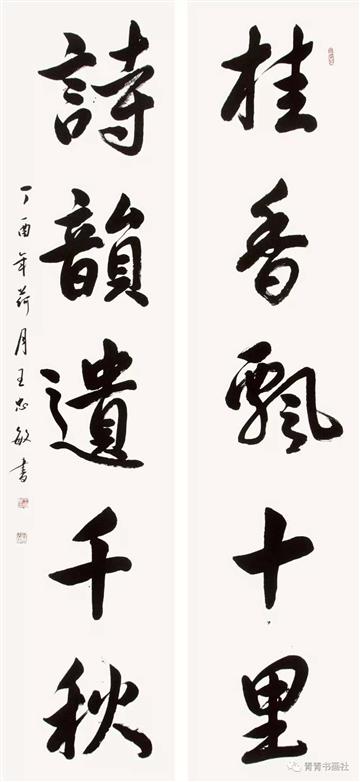 桂香飄十里
詩韻遺千秋
丁酉年荷月王忠敏書
菁菁书画社